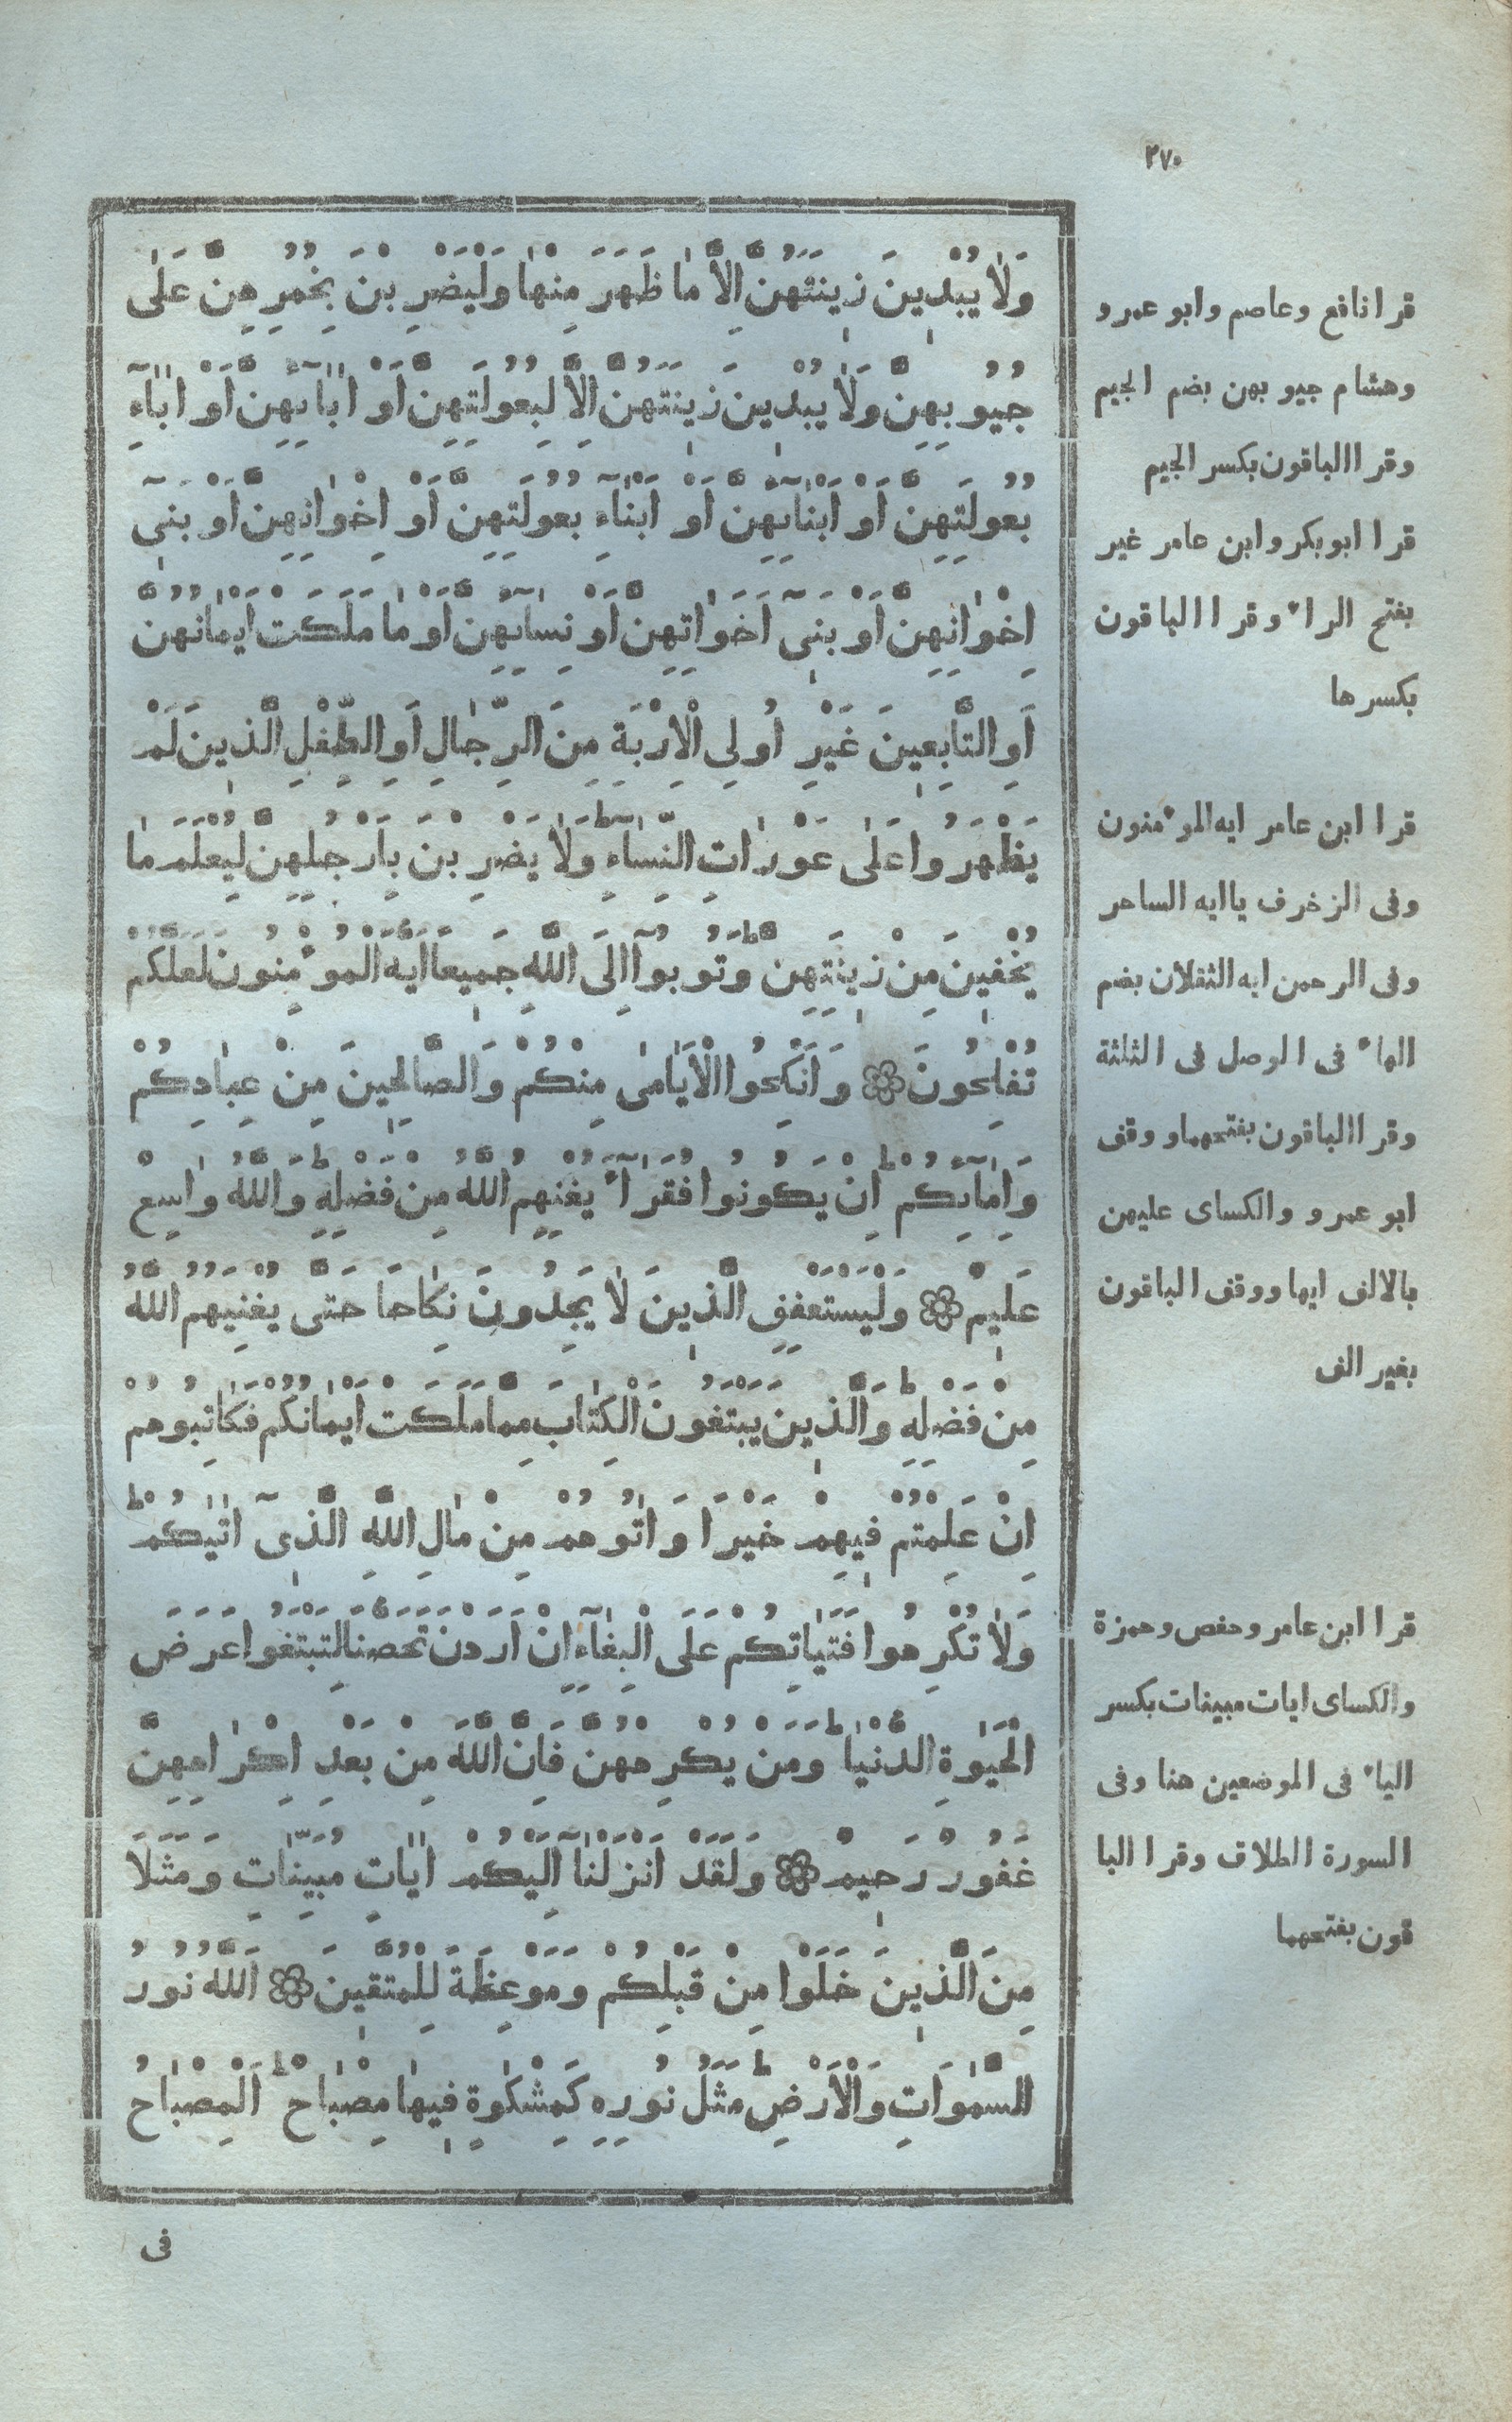 ٢٧٠
وَلاٰ يُبْدِينَ زِينَتَهُنَّ اِلاَّ مٰا ظَهَرَ مِنْهٰا وَلْيَضْرِبْنَ بِخُمُرِهِنَّ عَلٰى
جُيُوبِهِنَّ وَلاٰ يُبْدِينَ زِينَتَهُنَّ اِلاَّ لِبُعُولَتِهِنَّ اَوْ اٰبٰآئِهِنَّ اَوْ اٰبٰآءِ
بُعُولَتِهِنَّ اَوْ اَبْنٰآئِهِنَّ اَوْ اَبْنٰآءِ بُعُولَتِهِنَّ اَوْ اِخْوٰانِهِنَّ اَوْ بَنِىٓ
اِخْوٰانِهِنَّ اَوْ بَنِىٓ اَخَوٰاتِهِنَّ اَوْ نِسٰآئِهِنَّ اَوْ مٰا مَلَكَتْ اَيْمٰانُهُنَّ
اَوِ التَّابِعِينَ غَيْرِ اُولِى الْاِرْبَةِ مِنَ الرِّجٰالِ اَوِ الطِّفْلِ الَّذِينَ لَمْ
يَظْهَرُوا عَلٰى عَوْرٰاتِ النِّسٰآءِ ط وَلاٰ يَضْرِبْنَ بِاَرْجُلِهِنَّ لِيُعْلَمَ مٰا
يُخْفِينَ مِنْ زِينَتِهِنَّ ط وَتُوبُوآ اِلَى اللَّهِ جَمِيعًا اَيُّهَ الْمُؤْمِنُونَ لَعَلَّكُمْ
تُفْلِحُونَ ۞ وَاَنْكِحُوا الْاَيٰامٰى مِنْكُمْ وَالصَّالِحِينَ مِنْ عِبٰادِكُمْ
وَاِمٰآئِكُمْ ط اِنْ يَكُونُوا فُقَرٰآءَ يُغْنِهِمُ اللَّهُ مِنْ فَضْلِهِ ط وَاللَّهُ وٰاسِعٌ
عَلِيمٌ ۞ وَلْيَسْتَعْفِفِ الَّذِينَ لاٰ يَجِدُونَ نِكٰاحًا حَتَّى يُغْنِيَهُمُ اللَّهُ
مِنْ فَضْلِهِ ط وَالَّذِينَ يَبْتَغُونَ الْكِتٰابَ مِمَّا مَلَكَتْ اَيْمٰانُكُمْ فَكٰاتِبُوهُمْ
اِنْ عَلِمْتُمْ فِيهِمْ خَيْرًا وَاٰتُوهُمْ مِنْ مٰالِ اللَّهِ الَّذِىٓ اٰتٰيكُمْ ط
وَلاٰ تُكْرِهُوا فَتَيٰاتِكُمْ عَلَى الْبِغٰآءِ اِنْ اَرَدْنَ تَحَصُّنًا لِتَبْتَغُوا عَرَضَ
الْحَيٰوةِ الدُّنْيٰا ط وَمَنْ يُكْرِهْهُنَّ فَاِنَّ اللَّهَ مِنْ بَعْدِ اِكْرٰاهِهِنَّ
غَفُورٌ رَحِيمٌ ۞ وَلَقَدْ اَنْزَلْنٰآ اِلَيْكُمْ اٰيٰاتٍ مُبَيِّنٰاتٍ وَمَثَلًا
مِنَ الَّذِينَ خَلَوْا مِنْ قَبْلِكُمْ وَمَوْعِظَةً لِلْمُتَّقِينَ ۞ اَللَّهُ نُورُ
السَّمٰوَاتِ وَالْاَرْضِ ط مَثَلُ نُورِهِ كَمِشْكٰوةٍ فِيهٰا مِصْبٰاحٌ ط اَلْمِصْبٰاحُ
فى
قرا نافع وعاصم وابو عمرو
وهشام جيوبهن بضم الجيم
وقرا الباقون بكسر الجيم
قرا ابو بكر وابن عامر غير
بفتح الراء وقرا الباقون
بكسرها
قرا ابن عامر ايه المؤمنون
وفى الزخرف يا ايه الساحر
وفى الرحمن ايه الثقلان بضم
الهاء فى الوصل فى الثلثة
وقرا الباقون بفتحهما ووقف
ابو عمرو والكساى عليهن
بالالف ايها ووقف الباقون
بغير الف
قرا ابن عامر وحفص وحمزة
والكساى ايات مبينات بكسر
الياء فى الموضعين هنا وفى
السورة الطلاق وقرا البا
قون بفتحهما